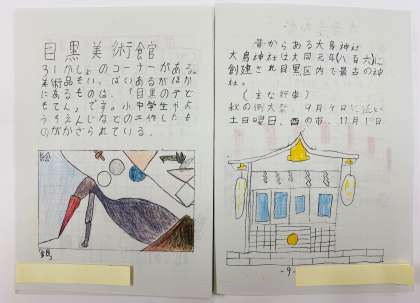 目黒美術館
ろいかしょのコーナーがある。
美術品もい。ぱいあるがとか
にあるものは、「目黒のテど
もてん」です。小中学生やよ
うちえんじなどの工作したも
のがかざられている。
絵
鶴
昔からある大鳥神社
大鳥神社は大同元年(八百六)に
創建され目黒区内で最古の神
社。
(主な行事)
秋の例大祭、9月9日に近い
土日曜日、酉の市、11月1日
-9-